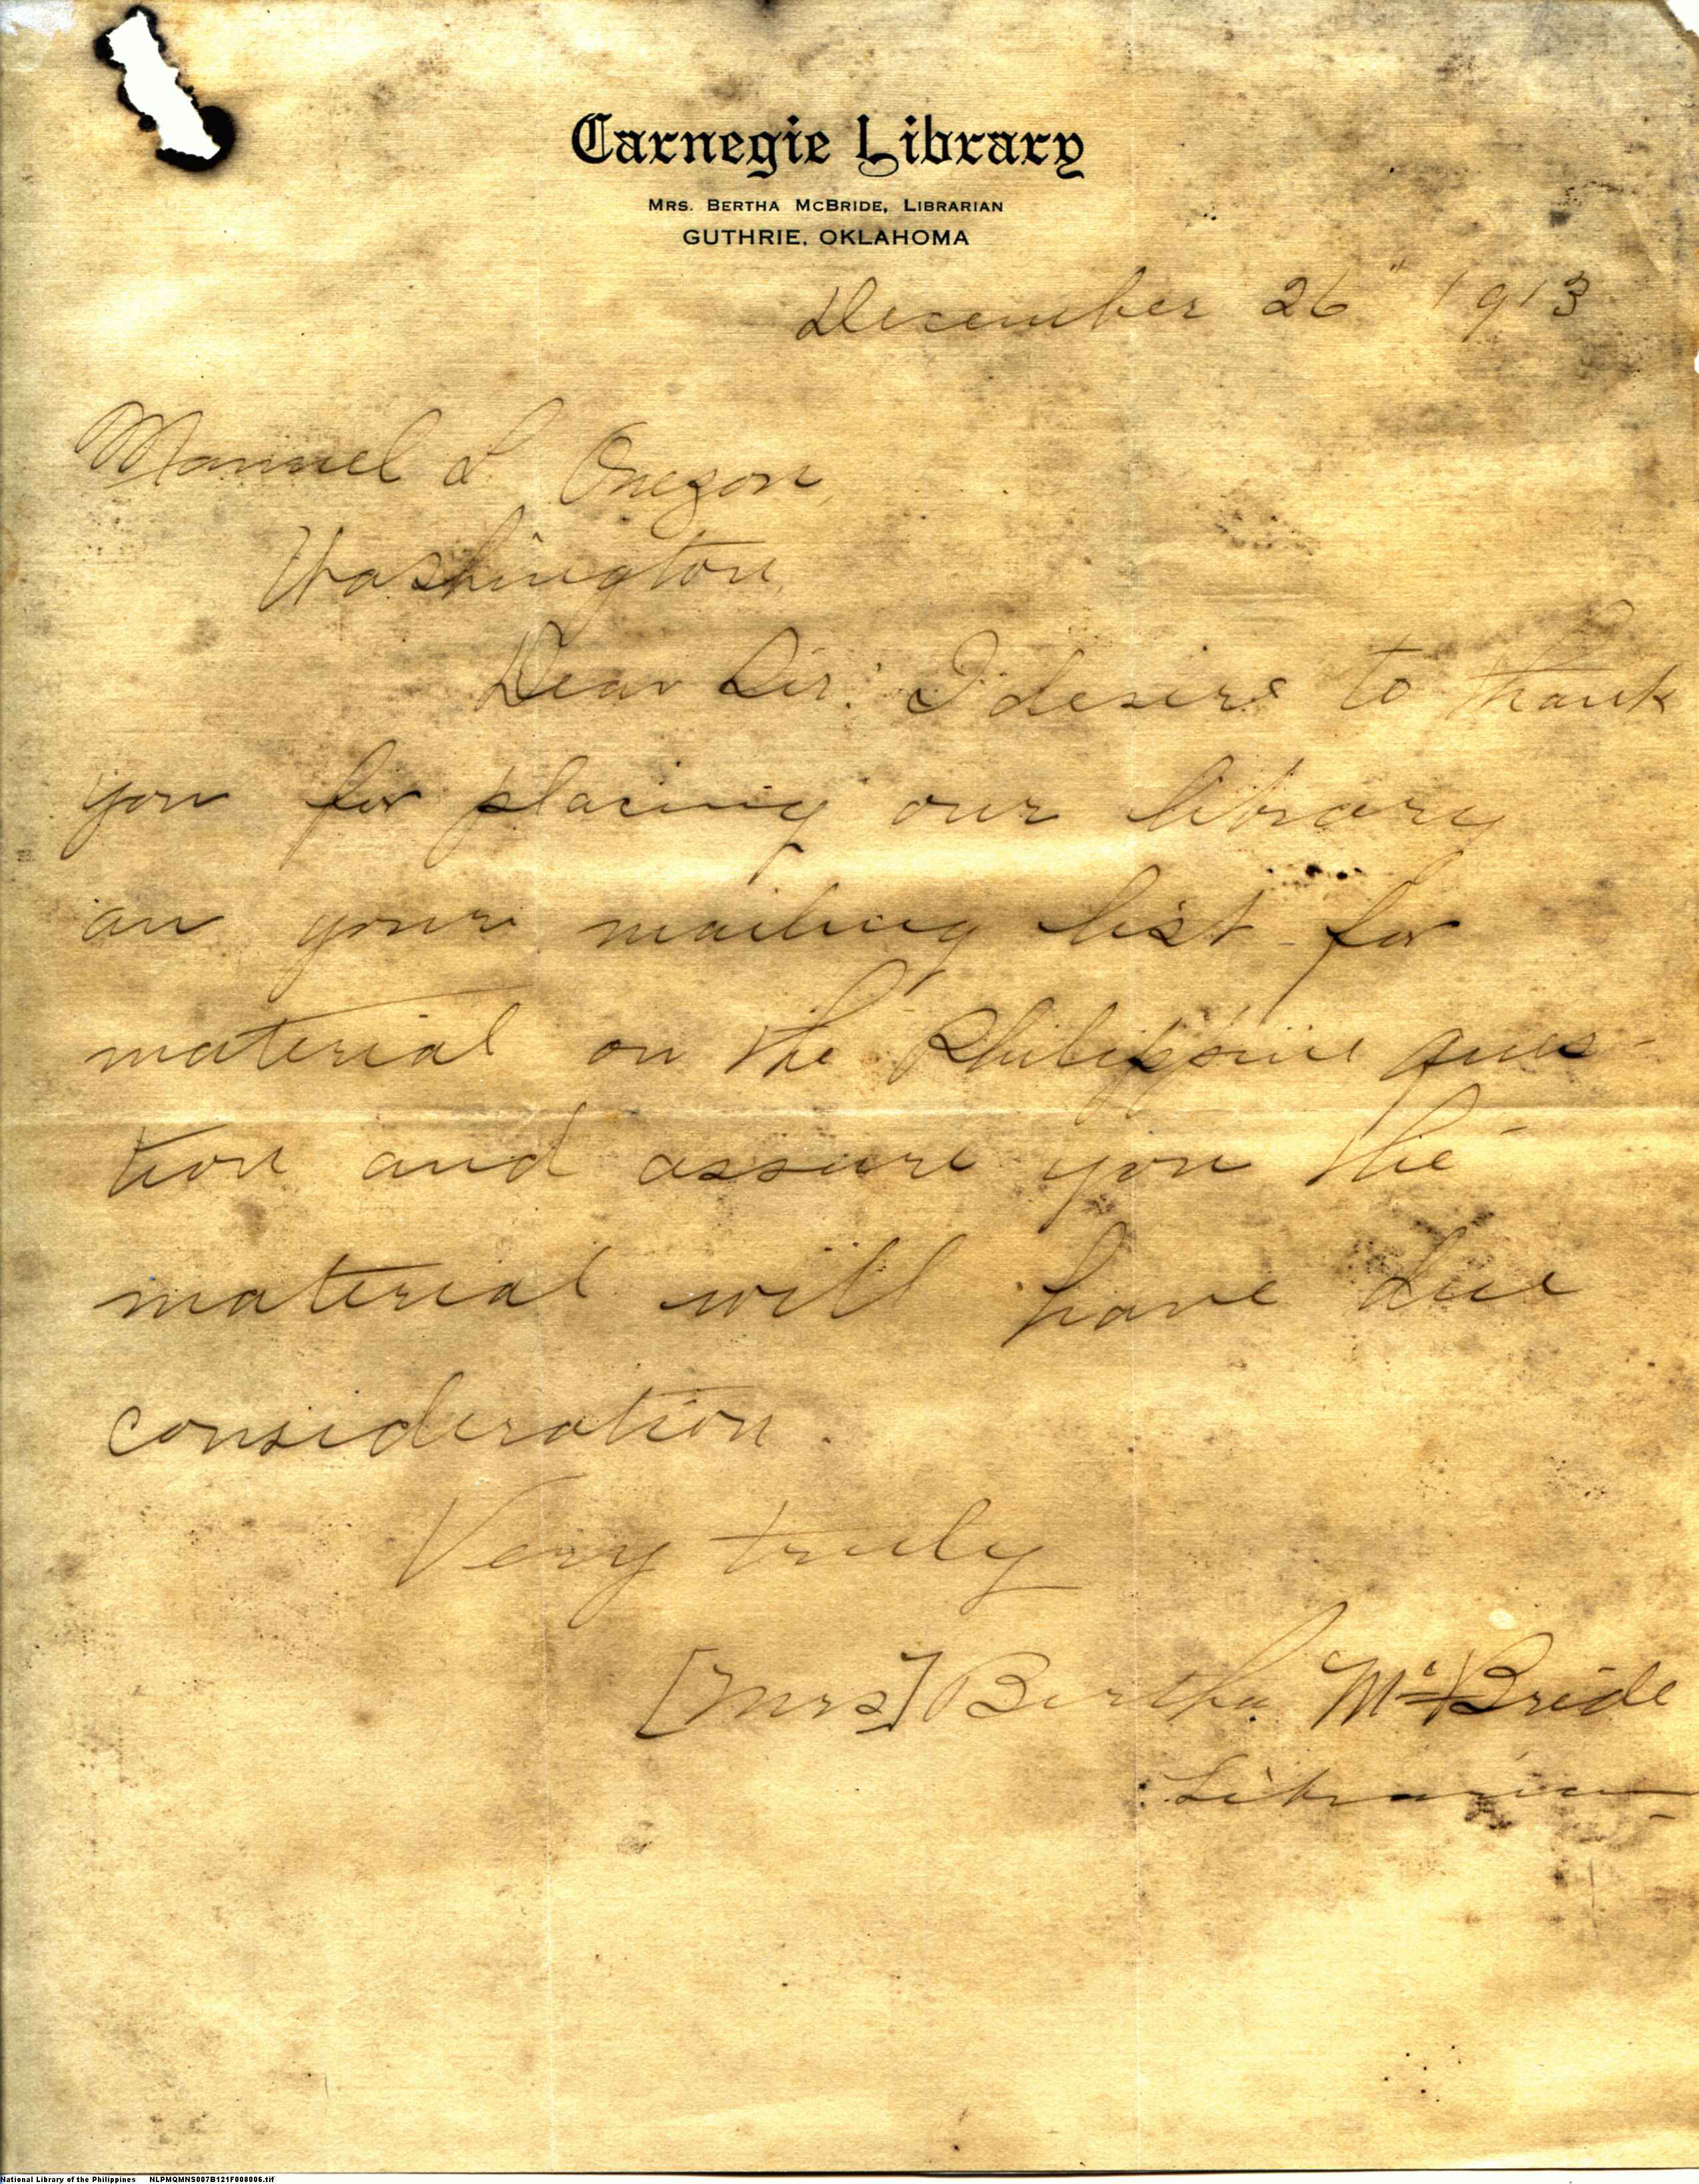 Carnegie Library
MRS. BERTHA MCBRIDE, LIBRARIAN
GUTHRIE, OKLAHOMA
December 26" 1913
Manuel L Onezon,
Washington,
Dear Sir: I desire to thank
you for placing our library
on your mailing list for
material on the Philippine ques-
tion and assure you the
material will have due
consideration.
Very truly
[Mrs] Bertha McBride
Librarian
National Library of the Philippines NLPMQMNS007B121F008006.tif